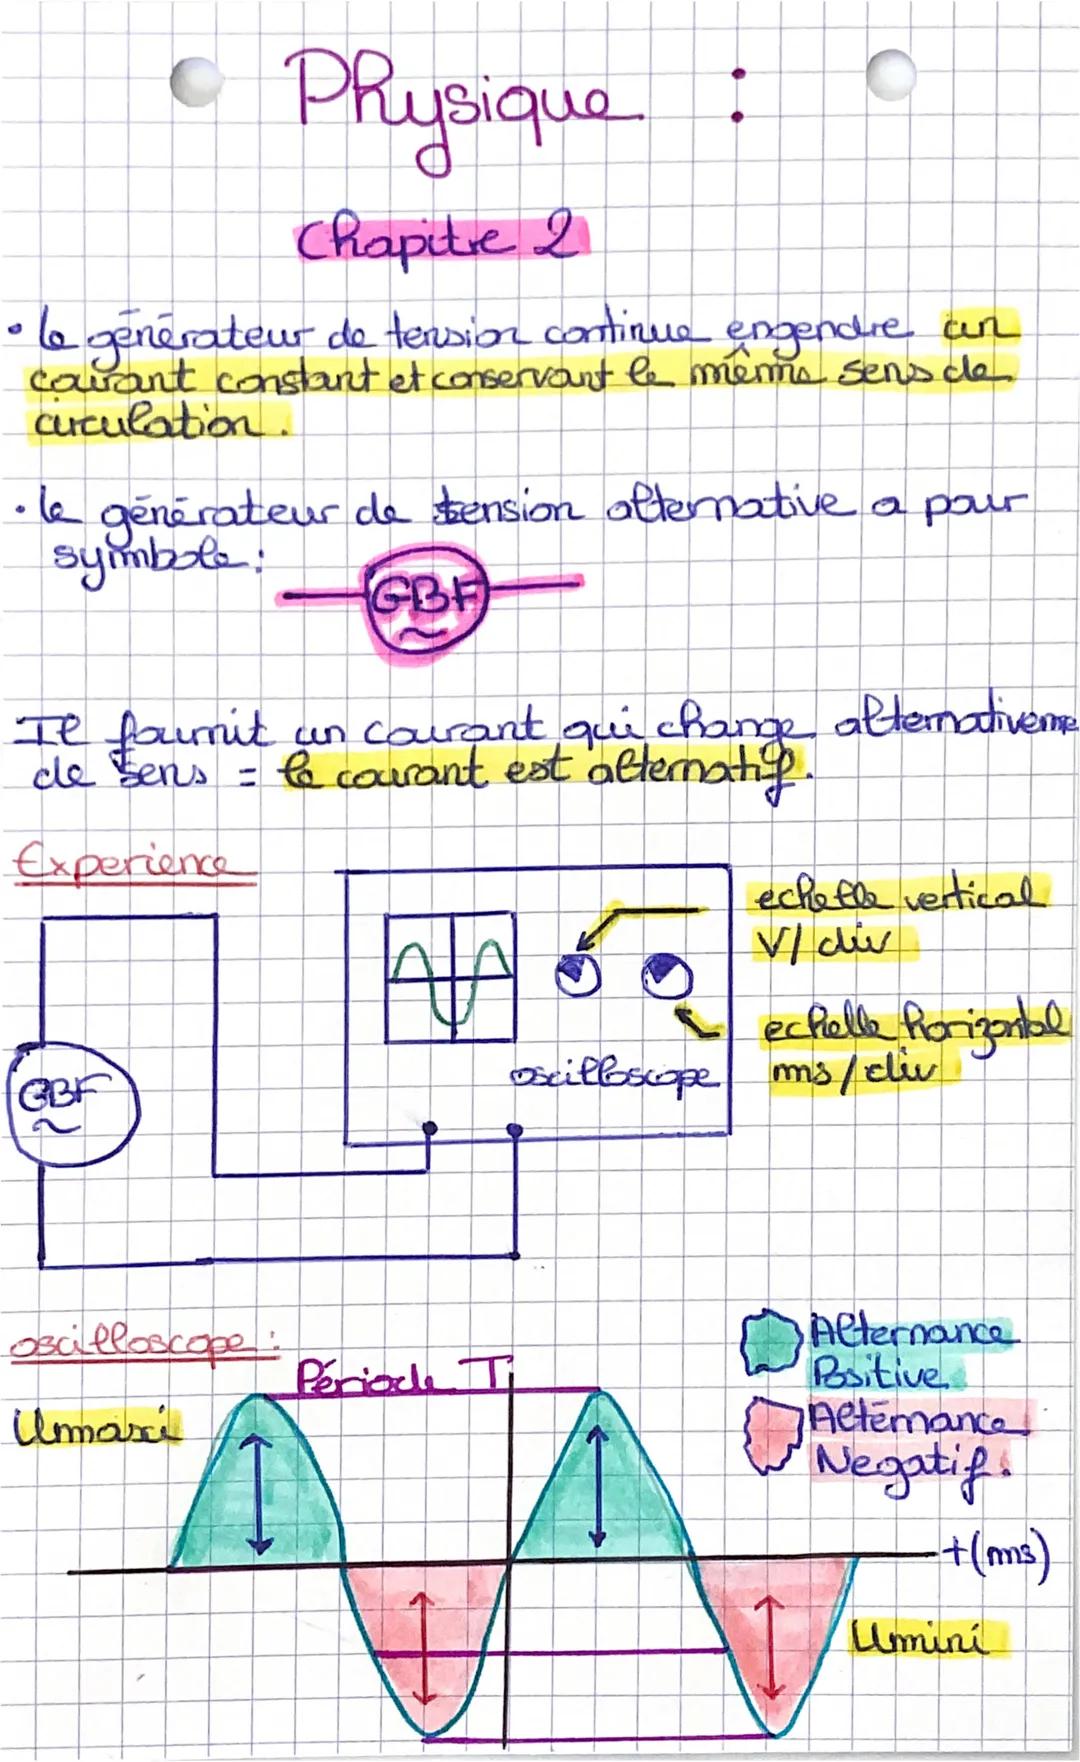 Physique :
Chapitre 2
• le générateur de tension continue engendre un
courant constant et conservant le même sens de
circulation.
• le générateur de tension alternative a pour
symbole :
GBF
~
Il fournit un courant qui change alternativeme
de sens = le courant est alternatif.
Experience
echelle vertical
V/div
echelle horizontal
ms/div
oscilloscope
GBF
~
oscilloscope :
Alternance
Positive
Période T
Umaxi
Alternance
Negatif.
t(ms)
Umini